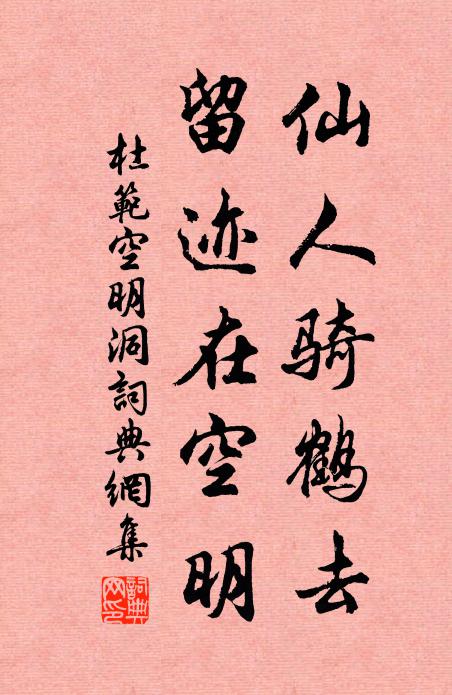 仙人骑鹤去
留迹在空明
杜範空明洞詞典網集
詞典網印